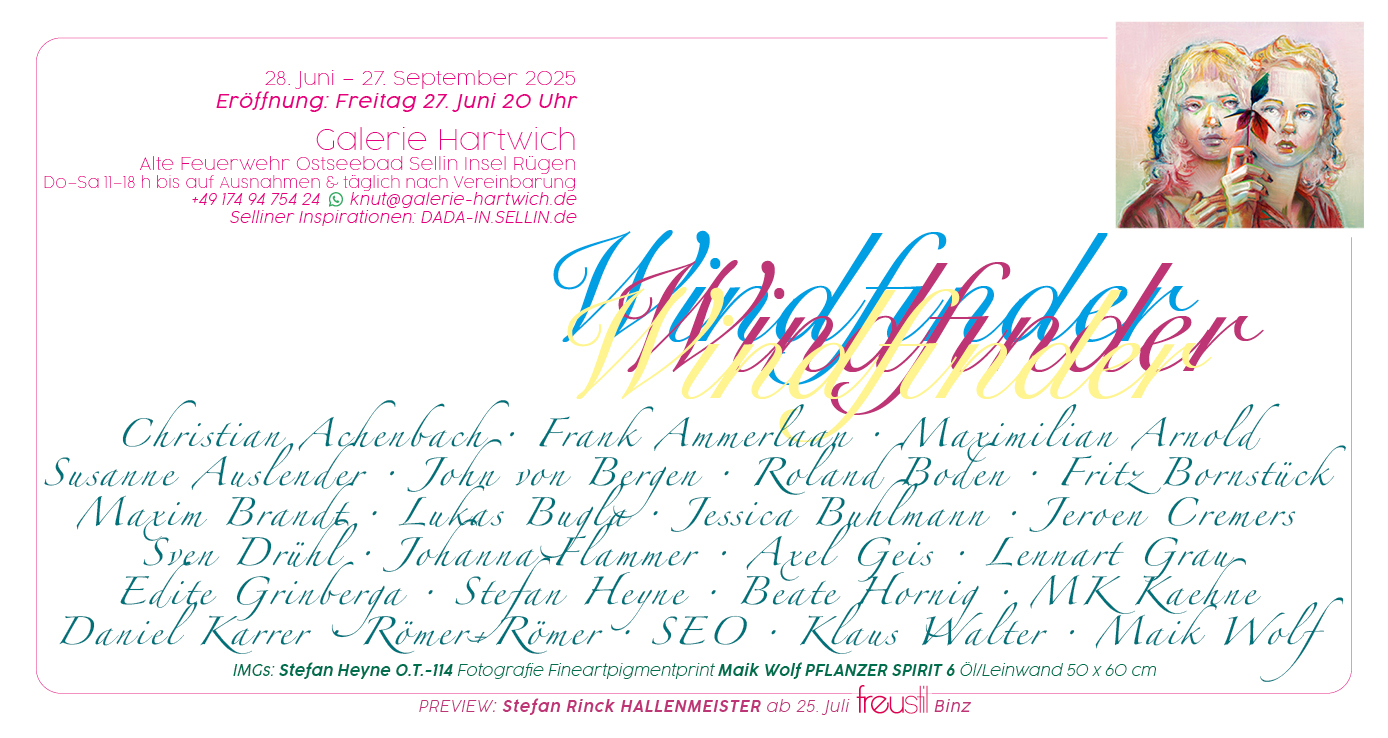 28. Juni – 27. September 2025
Eröffnung: Freitag 27. Juni 20 Uhr
Galerie Hartwich
Alte Feuerwehr Ostseebad Sellin Insel Rügen
Do–Sa 11–18 h bis auf Ausnahmen & täglich nach Vereinbarung
+49 174 94 754 24 knut@galerie-hartwich.de
Selliner Inspirationen: DADA-IN.SELLIN.de
Windfinder
Windfinder
Windfinder
Christian Achenbach · Frank Ammerlaan · Maximilian Arnold
Susanne Auslender · John von Bergen · Roland Boden · Fritz Bornstück
Maxim Brandt · Lukas Bugla · Jessica Buhlmann · Jeroen Cremers
Sven Drühl · Johanna Flammer · Axel Geis · Lennart Grau
Edite Grinberga · Stefan Heyne · Beate Hornig · MK Kaehne
Daniel Karrer · Römer+Römer · SEO · Klaus Walter · Maik Wolf
IMGs: Stefan Heyne O.T.-114 Fotografie Fineartpigmentprint Maik Wolf PFLANZER SPIRIT 6 Öl/Leinwand 50 x 60 cm
PREVIEW: Stefan Rinck HALLENMEISTER ab 25. Juli freustil Binz